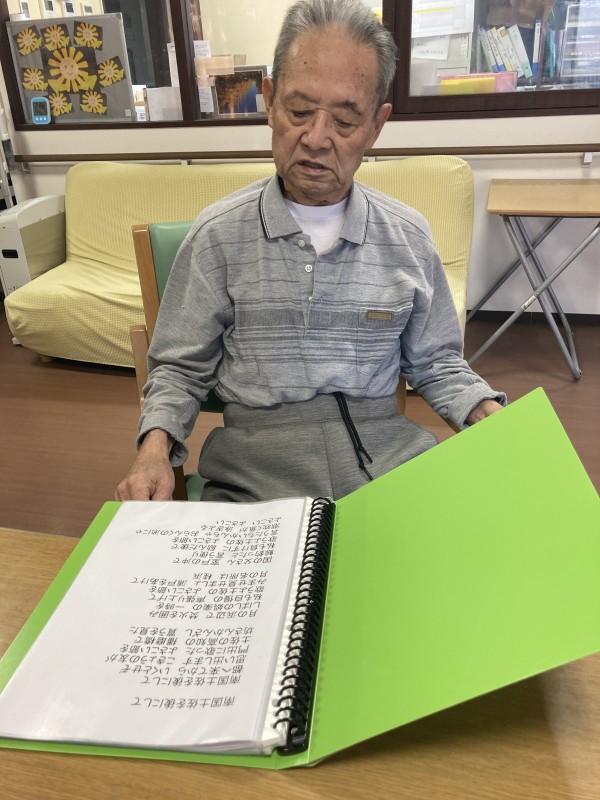 南国土佐を後にして
南国土佐を後にして
都へ来てから いくとせぞ
思い出します こきょうの友が
門出に歌った よさこい節を
土佐の高知の 播磨橋で
坊さんかんざし 買うを見た
月の浜辺で 焚火を囲み
しばしの娯楽の 一時を
私も自慢の 声張り上げて
歌うよ土佐の よさこい節を
みませ見せましょ 浦戸をあけて
月の名所は 桂浜
国の父さん 室戸の沖で
鯨釣ったと 言う便り
私も負けずに 励んだ後で
歌うよ土佐の よさこい節を
言うたちいかんちゃ おらんくの池にゃ
潮吹く魚が 泳ぎよる
よさこい よさこい